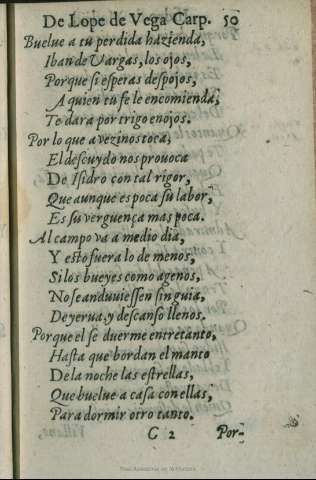 De Lope de Vega Carp. 50
Buelue a tu perdida hazienda,
Iban de Vargas, los ojos,
Porque si esperas despojos,
A quien tu fe le encomienda,
Te dara por trigo enojos.
Por lo que a vezinos toca,
El descuydo nos prouoca
De Isidro con tal rigor,
Que aunque es poca su labor,
Es su verguença mas poca.
Al campo va a medio dia,
Y esto fuera lo de menos,
Si los bueyes como agenos,
No se anduuiessen sin guia,
De yerua, y descanso llenos.
Porque el se duerme entretanto,
Hasta que bordan el manto
De la noche las estrellas,
Que buelue a casa con ellas,
Para dormir otro tanto.
G 2 Por-